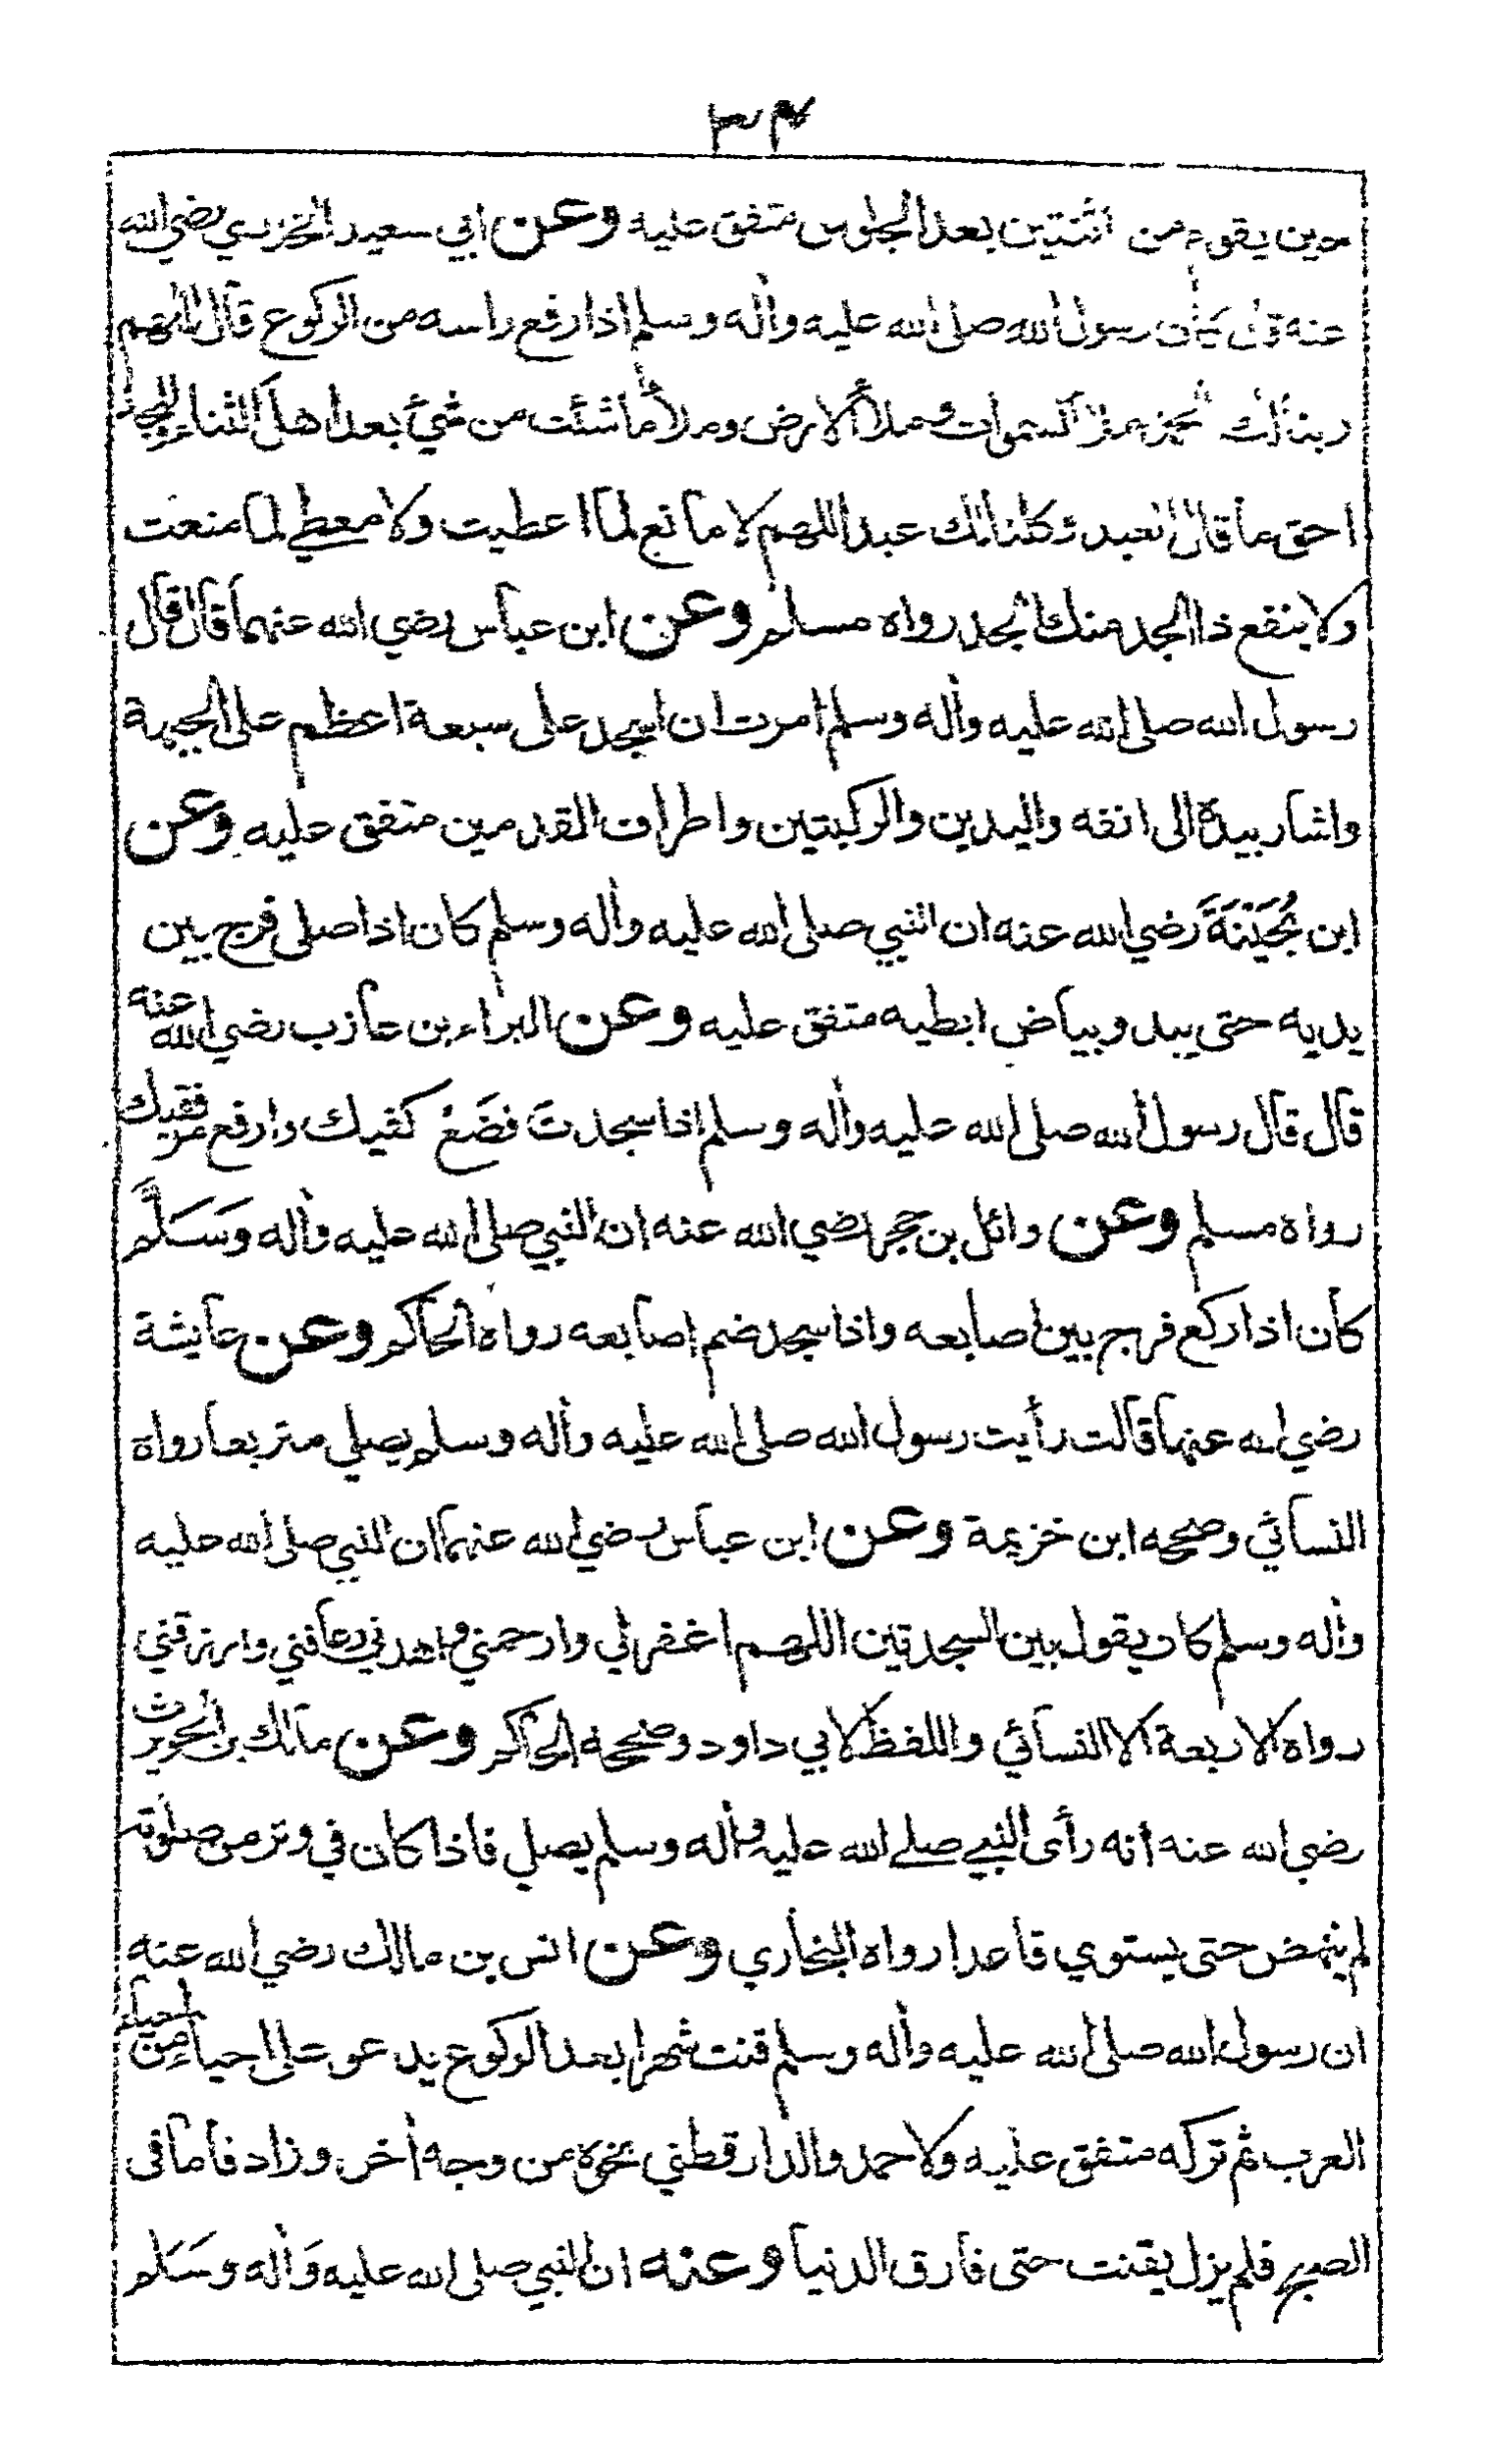 ٣٤
حين يقوم من اثنتين بعد الجلوس متفق عليه وعن ابي سعيد الخدري رضي الله
عنه قال كان رسول الله صلى الله عليه وأله وسلم اذا رفع راسه من الركوع قال اللهم
ربنا لك الحمد ملأ السموات وملأ الارض وملأ ما شئت من شيئ بعد اهل الثناء والمجد
احق ما قال العبد وكلنا لك عبد اللهم لا مانع لما اعطيت ولا معطي لما منعت
ولا ينفع ذا الجد منك الجد رواه مسلم وعن ابن عباس رضي الله عنهما قال قال
رسول الله صلى الله عليه وأله وسلم امرت ان اسجد على سبعة اعظم على الجبهة
واشار بيده الى انفه واليدين والركبتين واطراف القدمين متفق عليه وعن
ابن بُحَيْنَةَ رضي الله عنه ان النبي صلى الله عليه وأله وسلم كان اذا صلى فرج بين
يديه حتى يبدو بياض ابطيه متفق عليه وعن البراء بن عازب رضي الله عنه
قال قال رسول الله صلى الله عليه وأله وسلم اذا سجدتَ فضَعْ كفيك وارفع مرفقيك
رواه مسلم وعن وائل بن حجر رضي الله عنه ان النبي صلى الله عليه وأله وَسَلَّم
كان اذا ركع فرج بين اصابعه واذا سجد ضم اصابعه رواه الحاكم وعن عايشة
رضي الله عنها قالت رأيت رسول الله صلى الله عليه وأله وسلم يصلي متربعا رواه
النسائي وصححه ابن خزيمة وعن ابن عباس رضي الله عنهما ان النبي صلى الله عليه
وأله وسلم كان يقول بين السجدتين اللهم اغفر لي وارحمني واهدني وعافني وارزقني
رواه الاربعة الا النسائي واللفظ لابي داود وصححه الحاكم وعن مالك بن الحويرث
رضي الله عنه انه رأى النبي صلى الله عليه وأله وسلم يصلي فاذا كان في وتر من صلوته
لم ينهض حتى يستوي قاعدا رواه البخاري وعن انس بن مالك رضي الله عنه
ان رسول الله صلى الله عليه وأله وسلم قنت شهرا بعد الركوع يدعو على احياء من احياء
العرب ثم تركه متفق عليه ولاحمد والدارقطني نحوه من وجه أخر وزاد فاما في
الصبح فلم يزل يقنت حتى فارق الدنيا وعنه ان النبي صلى الله عليه وَأله وسَلم